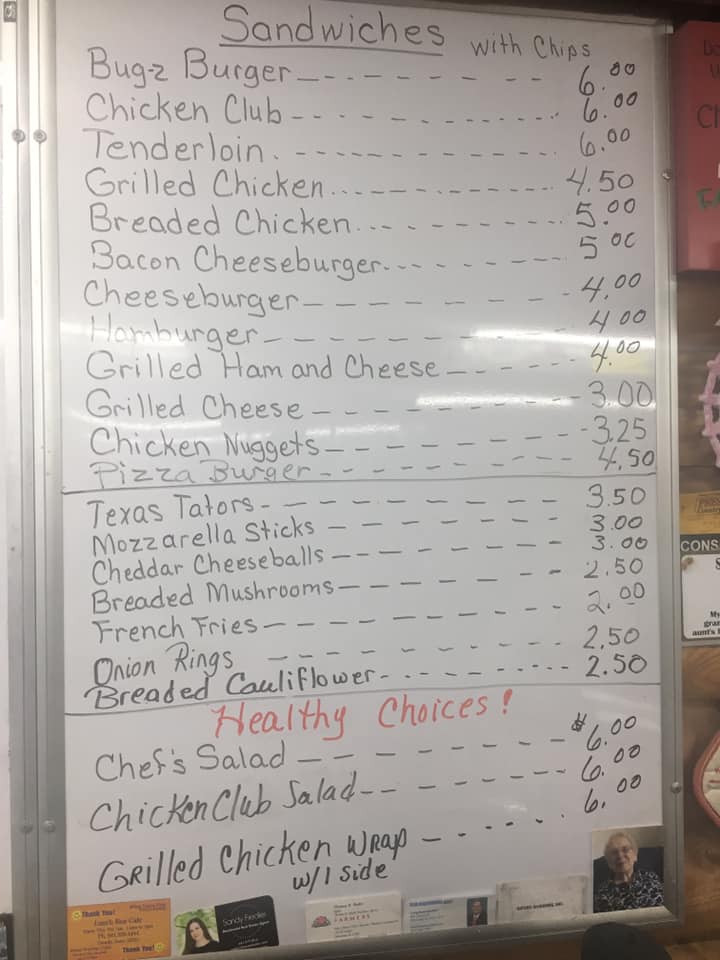 Sandwiches with Chips
Bug-z Burger 6.00
Chicken Club 6.00
Tenderloin 6.00
Grilled Chicken 4.50
Breaded Chicken 5.00
Bacon Cheeseburger 5 00
Cheeseburger 4.00
Hamburger 4 00
Grilled Ham and Cheese 4.00
Grilled Cheese 3.00
Chicken Nuggets 3.25
Pizza Burger 4.50
Texas Tators 3.50
Mozzarella Sticks 3.00
Cheddar Cheeseballs 3.00
Breaded Mushrooms 2.50
French Fries 2.00
Onion Rings 2.50
Breaded Cauliflower 2.50
Healthy Choices!
Chef's Salad $6.00
Chicken Club Salad 6.00
Grilled Chicken Wrap 6.00
w/1 side
Thank You!
Thank You!
Sandy
FARMERS
CONS